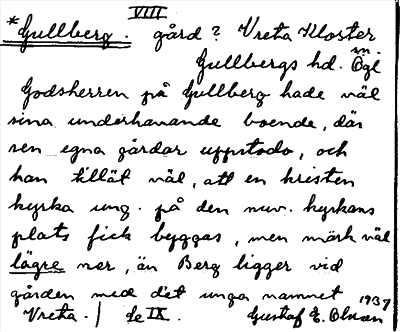 VIII
*Gullberg. gård? Vreta Kloster
sn.
Gullbergs hd. Ögl
Godsherren på Gullberg hade väl
sina underhavande boende, där
sen egna gårdar uppstodo, och
han tillät väl, att en kristen
kyrka ung. på den nuv. kyrkans
plats fick byggas, men märk väl
lägre ner, än Berg ligger vid
gården med det unga namnet
Vreta. / Se IX. Gustaf E. Olsson 1937